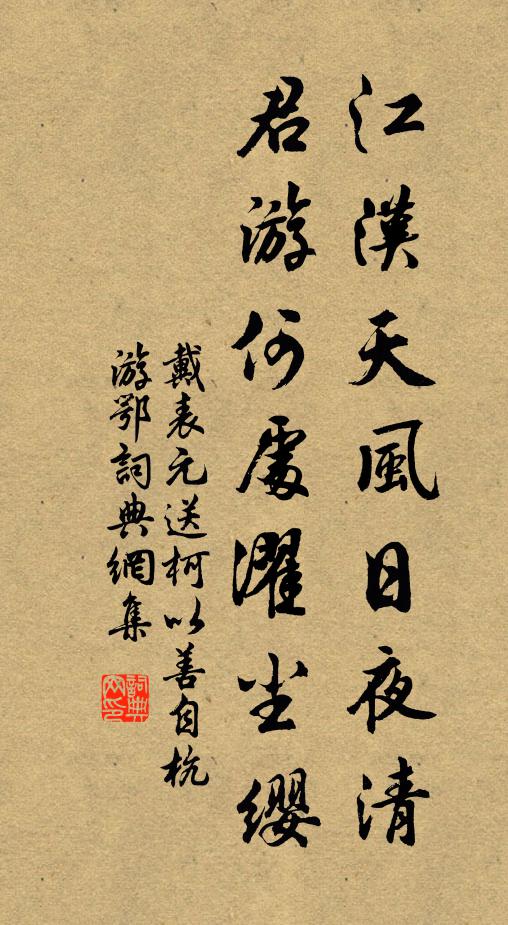 江漢天風日夜清
君游何處濯尘纓
戴表元送柯以善自杭
游鄂詞典網集